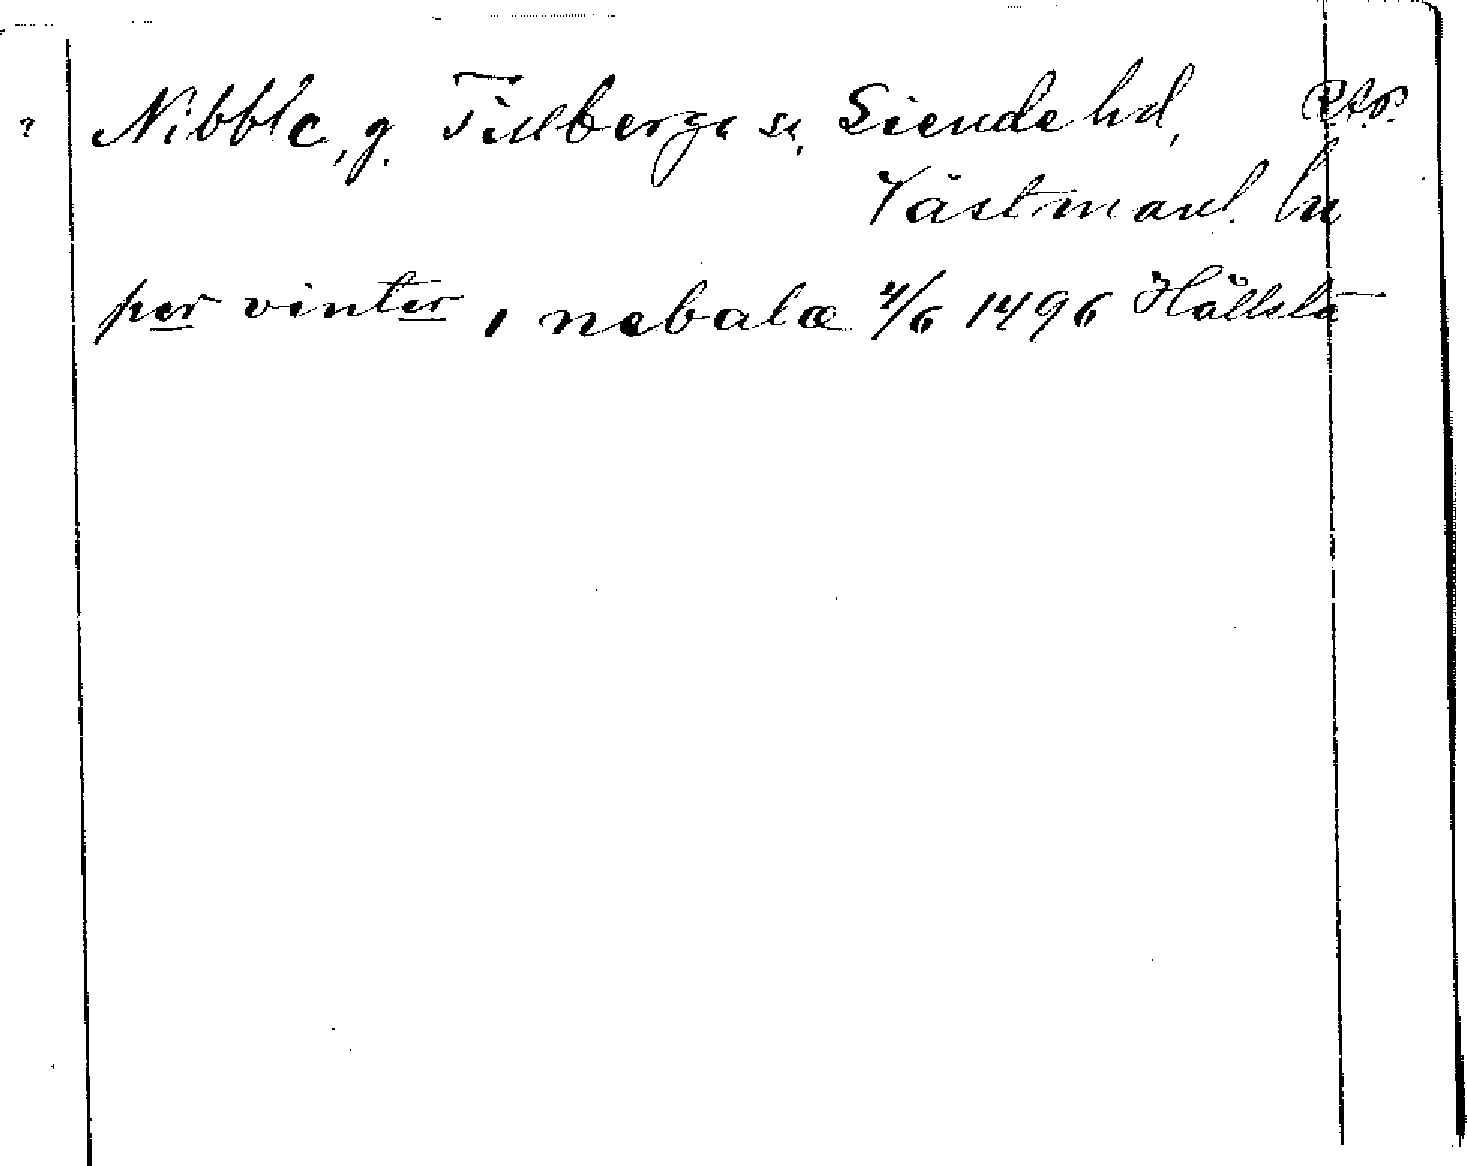 Nibble, g. Tillberga sn, Siende hd,
Västmanl. län
per vinter, nebalæ 4/6 1496 Hällsta